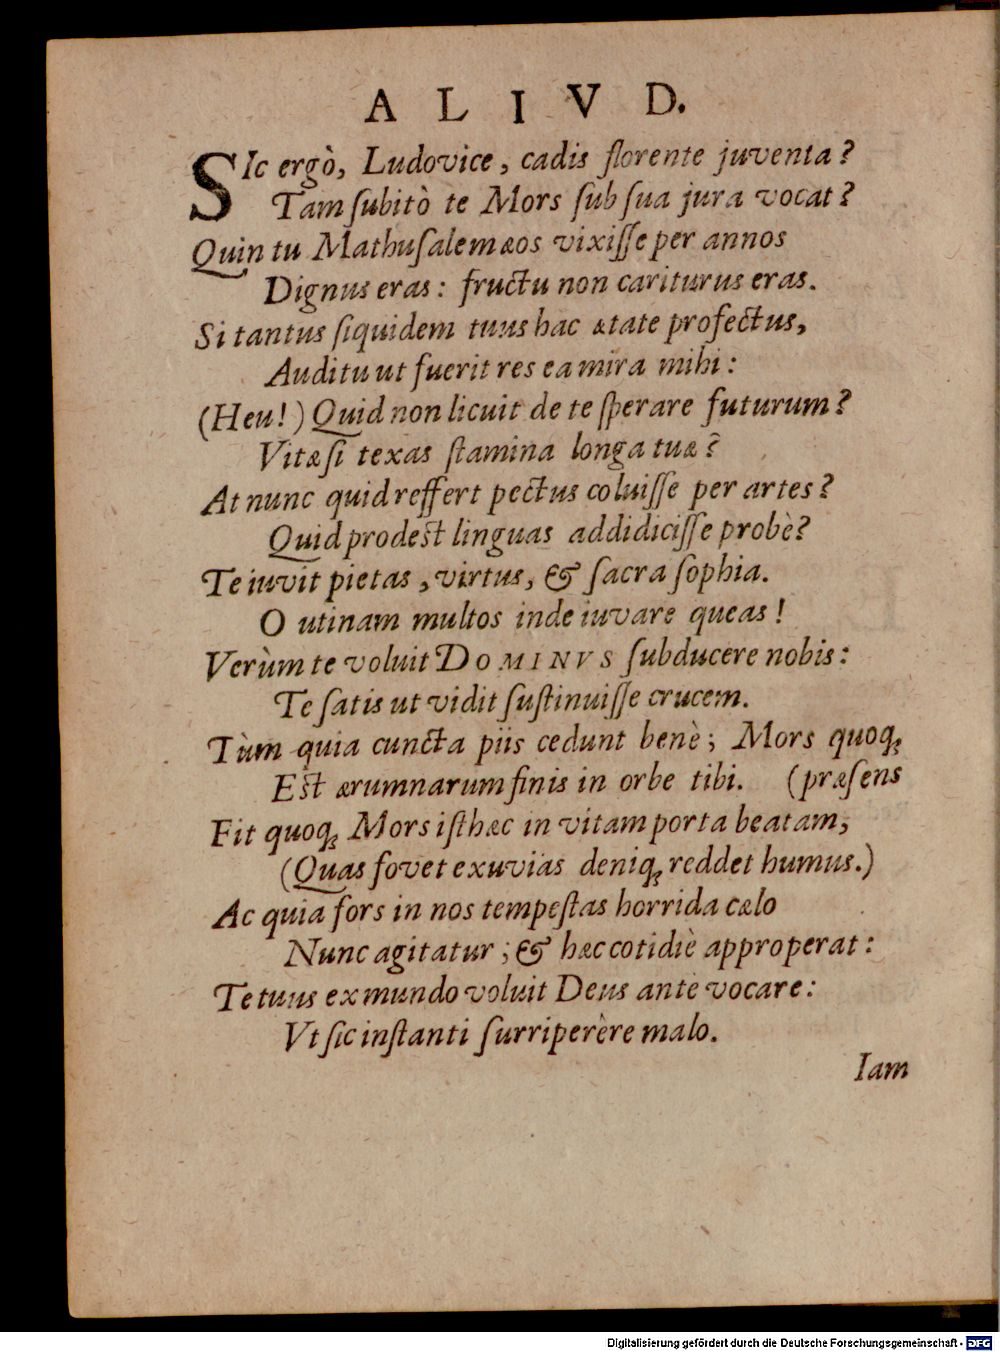 ALIVD.
SIc ergò, Ludovice, cadis florente juventa?
Tam ſubitò te Mors ſub ſua jura vocat?
Quin tu Mathuſalemæos vixiſſe per annos
Dignus eras: fructu non cariturus eras.
Si tantus ſiquidem tuus hac ætate profectus,
Auditu ut fuerit res ea mira mihi:
(Heu!) Quid non licuit de te ſperare futurum?
Vitæ ſi texas ſtamina longa tuæ?
At nunc quid reffert pectus coluiſſe per artes?
Quid prodest linguas addidiciſſe probè?
Te iuvit pietas, virtus, & ſacra ſophia.
O utinam multos inde iuvare queas!
Verùm te voluit DOMINVS ſubducere nobis:
Te ſatis ut vidit ſuſtinuiſſe crucem.
Tùm quia cuncta piis cedunt benè; Mors quoq́;
Est ærumnarum finis in orbe tibi. (præſens
Fit quoq́; Mors iſthæc in vitam porta beatam,
(Quas fovet exuvias deniq́; reddet humus.)
Ac quia fors in nos tempeſtas horrida cælo
Nunc agitatur; & hæc cotidiè approperat:
Te tuus ex mundo voluit Deus ante vocare:
Vt ſic inſtanti ſurriperère malo.
Iam
Digitalisierung gefördert durch die Deutsche Forschungsgemeinschaft - DFG